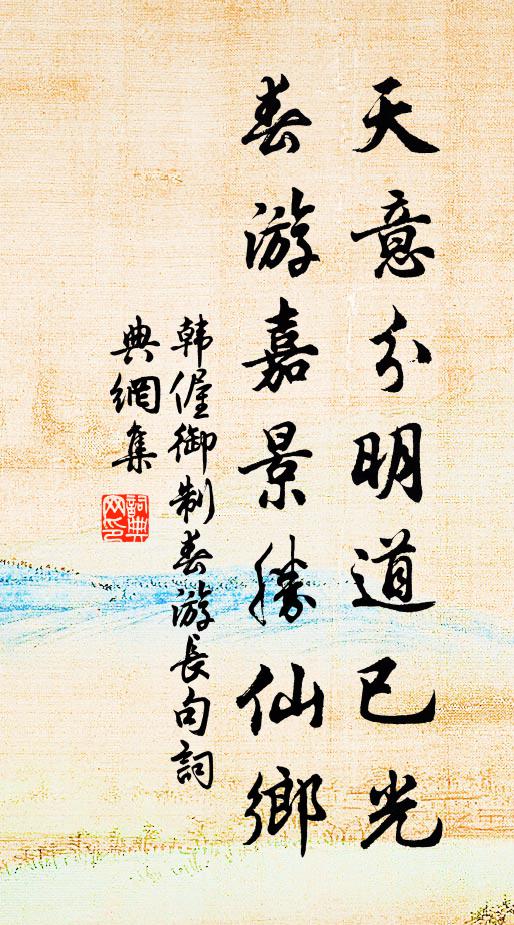 天意分明道已光
春游嘉景勝仙鄉
韩偓御制春游長句詞
典網集
詞典
网印